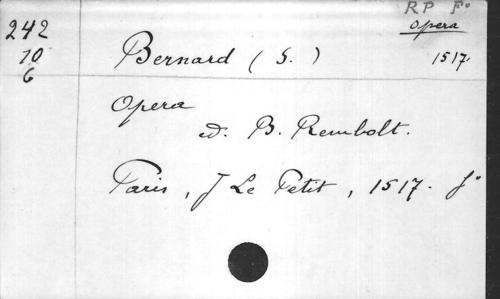 242
10
6
RP Fo
Opera
1517
Bernard (S.)
Opera
ed. B. Rembolt.
Paris, J Le Petit, 1517. fo